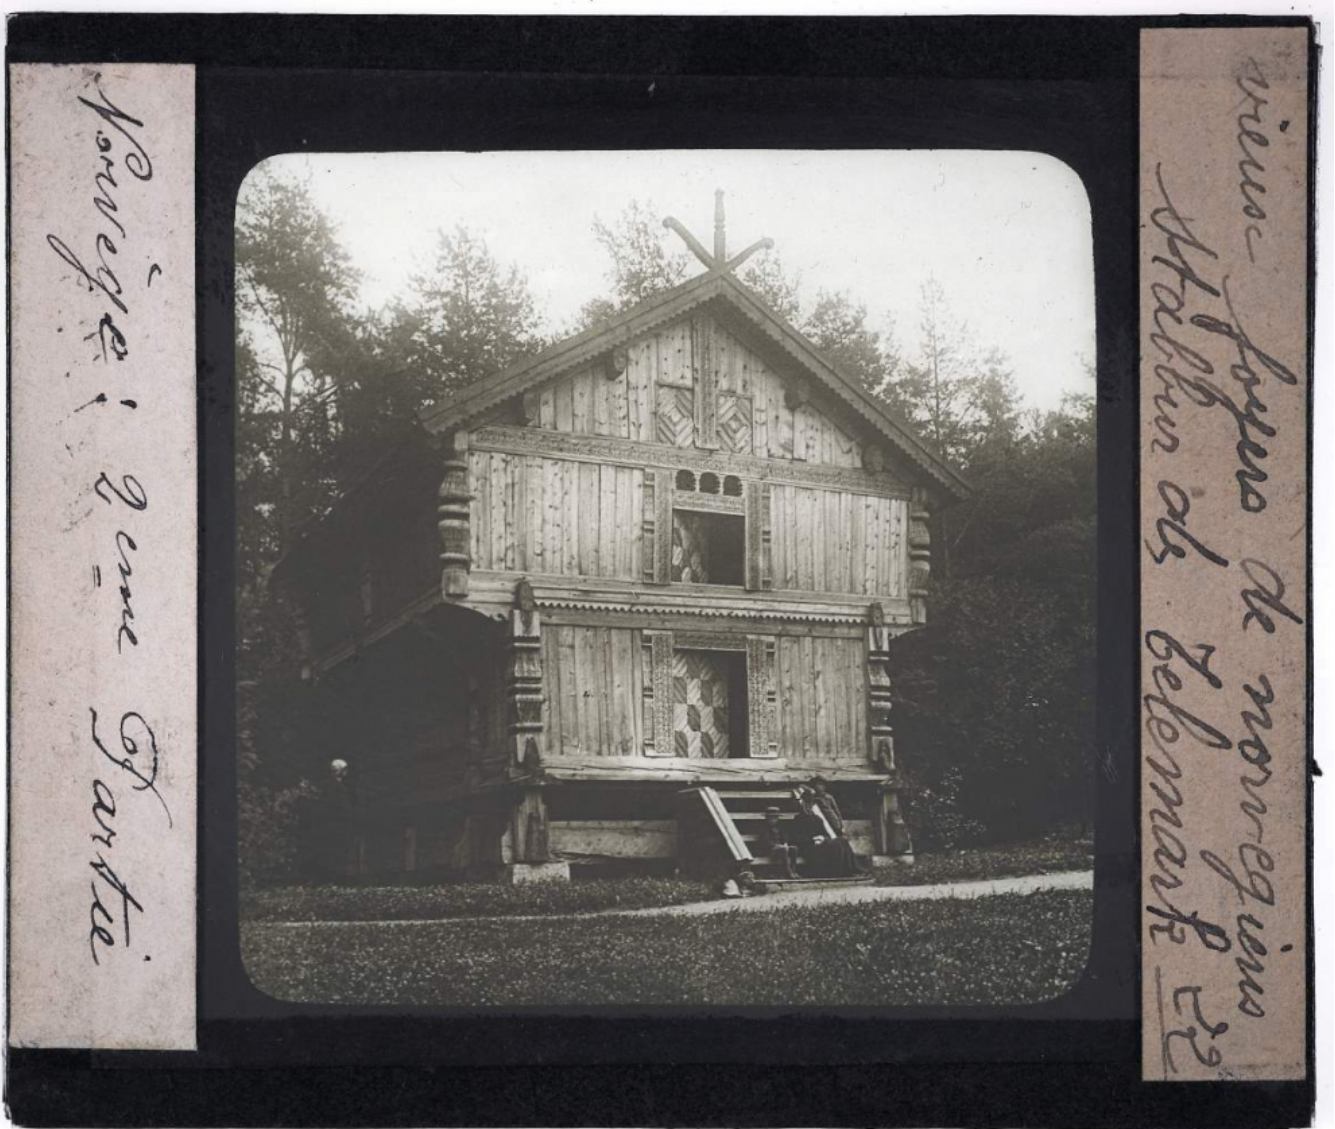 Norvège ; 2eme Partie
vieux foyers de norvegiens
Stabbur de Telemark